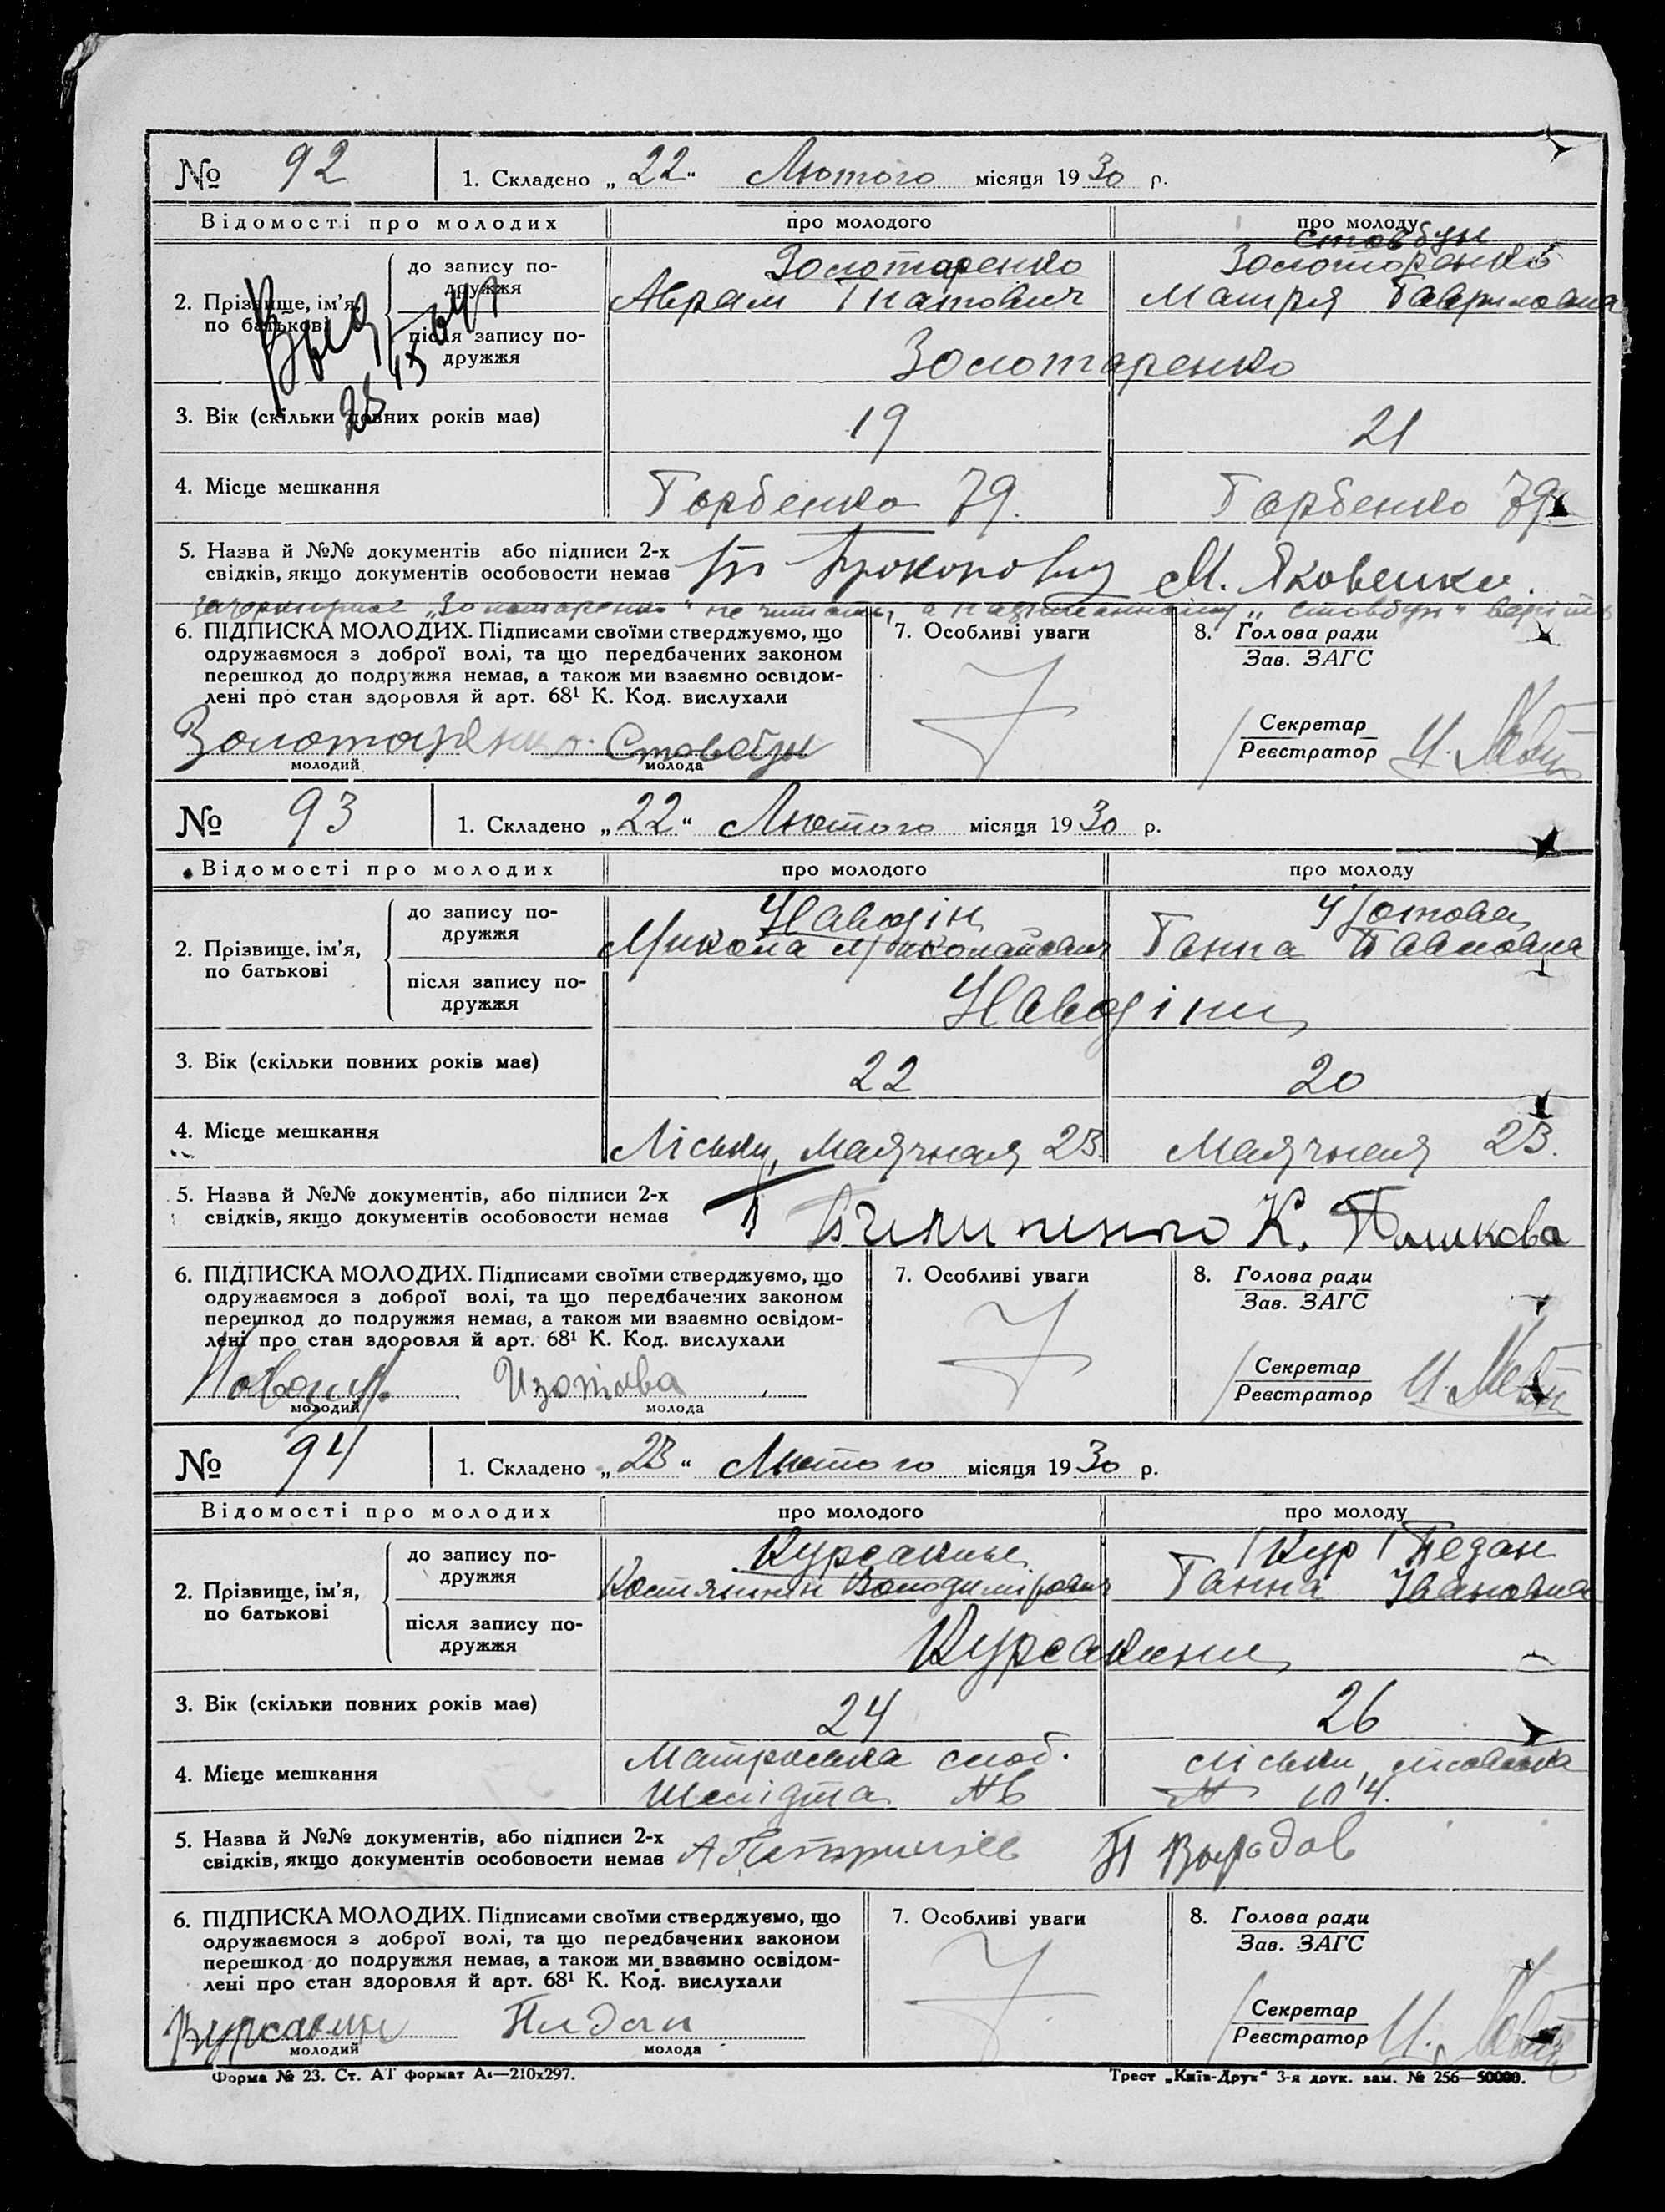 № 92 1. Складено „22“ Лютого місяця 1930 р.
Відомості про молодих про молодого про молоду
Стовбун
до запису по- Золотаренко Золотаренко
дружжя
2. Прізвище, ім’я, Аврам Гнатович Мотря Гавриловна
по батькові
після запису по- Золотаренко
дружжя
3. Вік (скільки повних років має) 19 21
4. Місце мешкання Горбенко 79. Горбенко 79
5. Назва й №№ документів або підписи 2-х
свідків, якщо документів особовости немає М. Яковенко.
„Золотаренко“ не читати, а „Стовбун“
6. ПІДПИСКА МОЛОДИХ. Підписами своїми стверджуємо, що 7. Особливі уваги 8. Голова ради
одружаємося з доброї волі, та що передбачених законом Зав. ЗАГС
перешкод до подружжя немає, а також ми взаємно освідом-
лені про стан здоровля й арт. 68¹ К. Код. вислухали
Секретар
Золотаренко Стовбун Реєстратор
молодий молода
№ 93 1. Складено „22“ Лютого місяця 1930 р.
Відомості про молодих про молодого про молоду
до запису по- Наводін
дружжя
2. Прізвище, ім’я, Микола Миколайович Ганна Павловна
по батькові
після запису по- Наводіни
дружжя
3. Вік (скільки повних років має) 22 20
4. Місце мешкання Ліски, Маячная 23 Маячная 23.
5. Назва й №№ документів, або підписи 2-х
свідків, якщо документів особовости немає К.
6. ПІДПИСКА МОЛОДИХ. Підписами своїми стверджуємо, що 7. Особливі уваги 8. Голова ради
одружаємося з доброї волі, та що передбачених законом Зав. ЗАГС
перешкод до подружжя немає, а також ми взаємно освідом-
лені про стан здоровля й арт. 68¹ К. Код. вислухали
Секретар
Изотова Реєстратор
молодий молода
№ 94 1. Складено „23“ Лютого місяця 1930 р.
Відомості про молодих про молодого про молоду
до запису по- Курсакин (Кур) Педан
дружжя
2. Прізвище, ім’я, Костянтин Володимірович Ганна Івановна
по батькові
після запису по- Курсакини
дружжя
3. Вік (скільки повних років має) 24 26
Матроська слоб. Ліськи,
4. Місце мешкання
Шмідта № 104.
5. Назва й №№ документів, або підписи 2-х
свідків, якщо документів особовости немає П
6. ПІДПИСКА МОЛОДИХ. Підписами своїми стверджуємо, що 7. Особливі уваги 8. Голова ради
одружаємося з доброї волі, та що передбачених законом Зав. ЗАГС
перешкод до подружжя немає, а також ми взаємно освідом-
лені про стан здоровля й арт. 68¹ К. Код. вислухали
Секретар
Курсакин Педан Реєстратор
молодий молода
Форма № 23. Ст. АТ формат А₄—210х297. Трест „Київ-Друк“ 3-я друк. зам. № 256—50000.